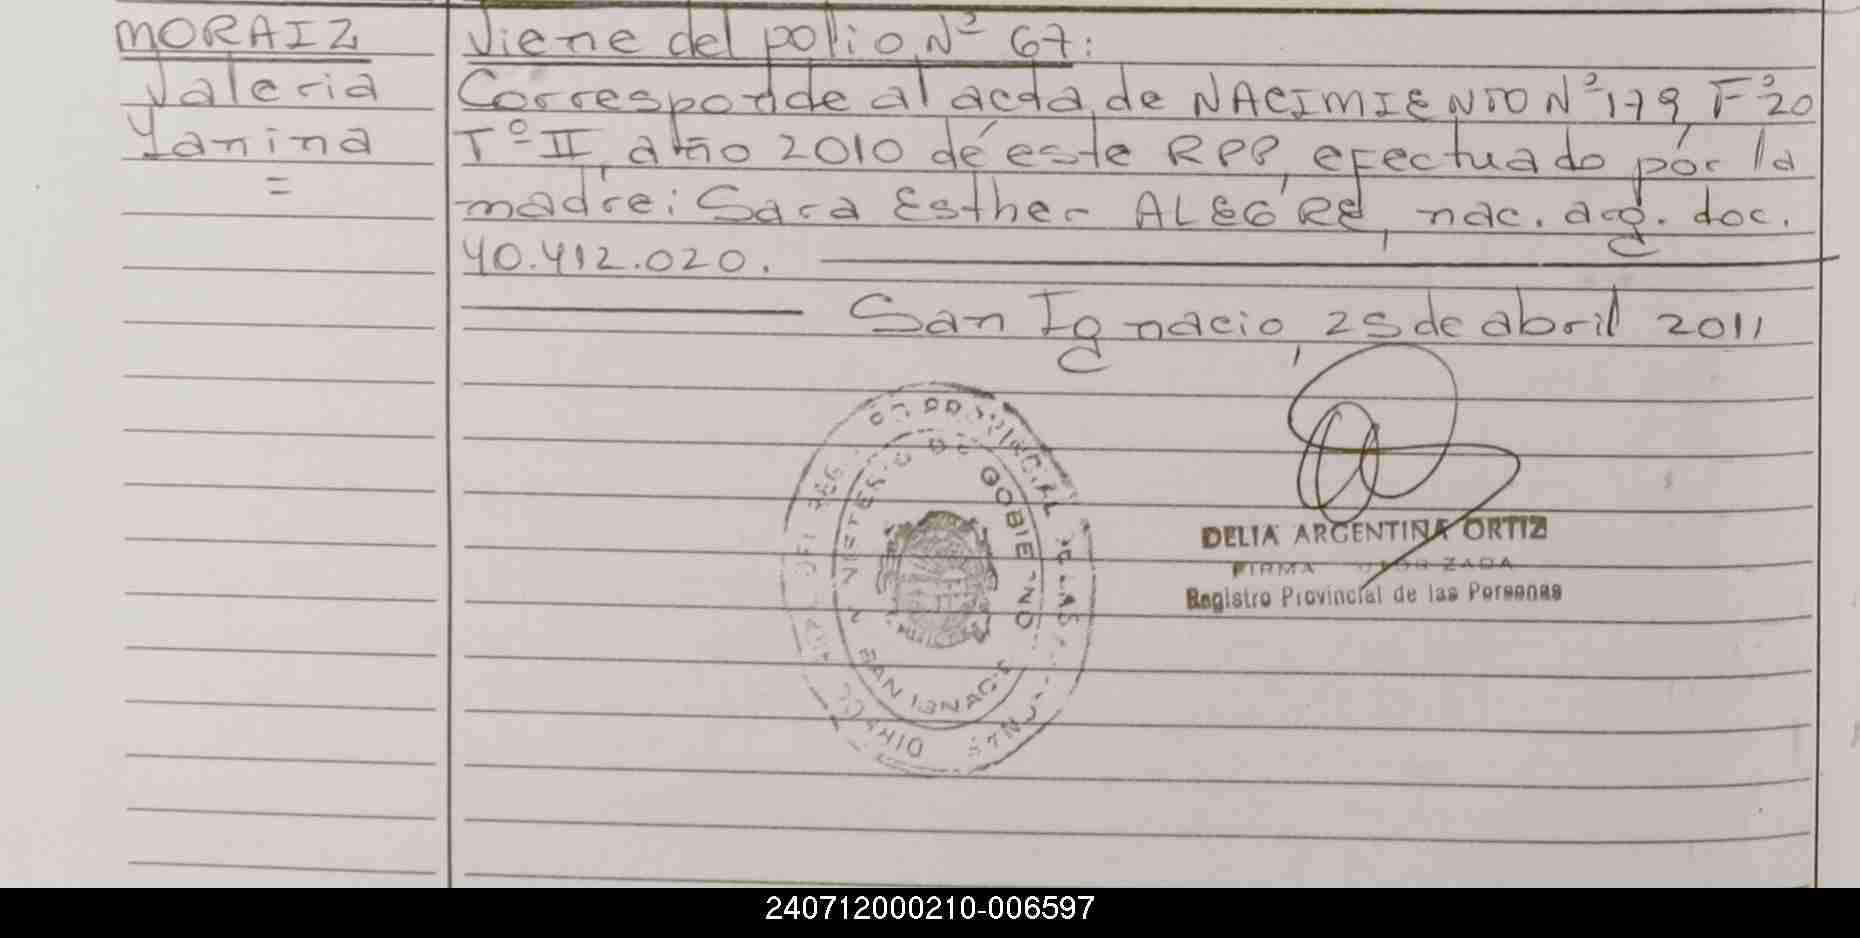 MORAIZ
Valeria
Yanina
=
Viene del folio Nº 67:
Corresponde al acta de NACIMIENTO Nº 179, Fº 20
Tº II, año 2010 de este RPP, efectuado por la
madre: Sara Esther ALEGRE, nac. arg. doc.
40.412.020.
San Ignacio, 25 de abril 2011
PROVINCIAL DE LAS
DE GOBIERNO
SAN IGNACIO
DELIA ARGENTINA ORTIZ
FIRMA
Registro Provincial de las Personas
240712000210-006597